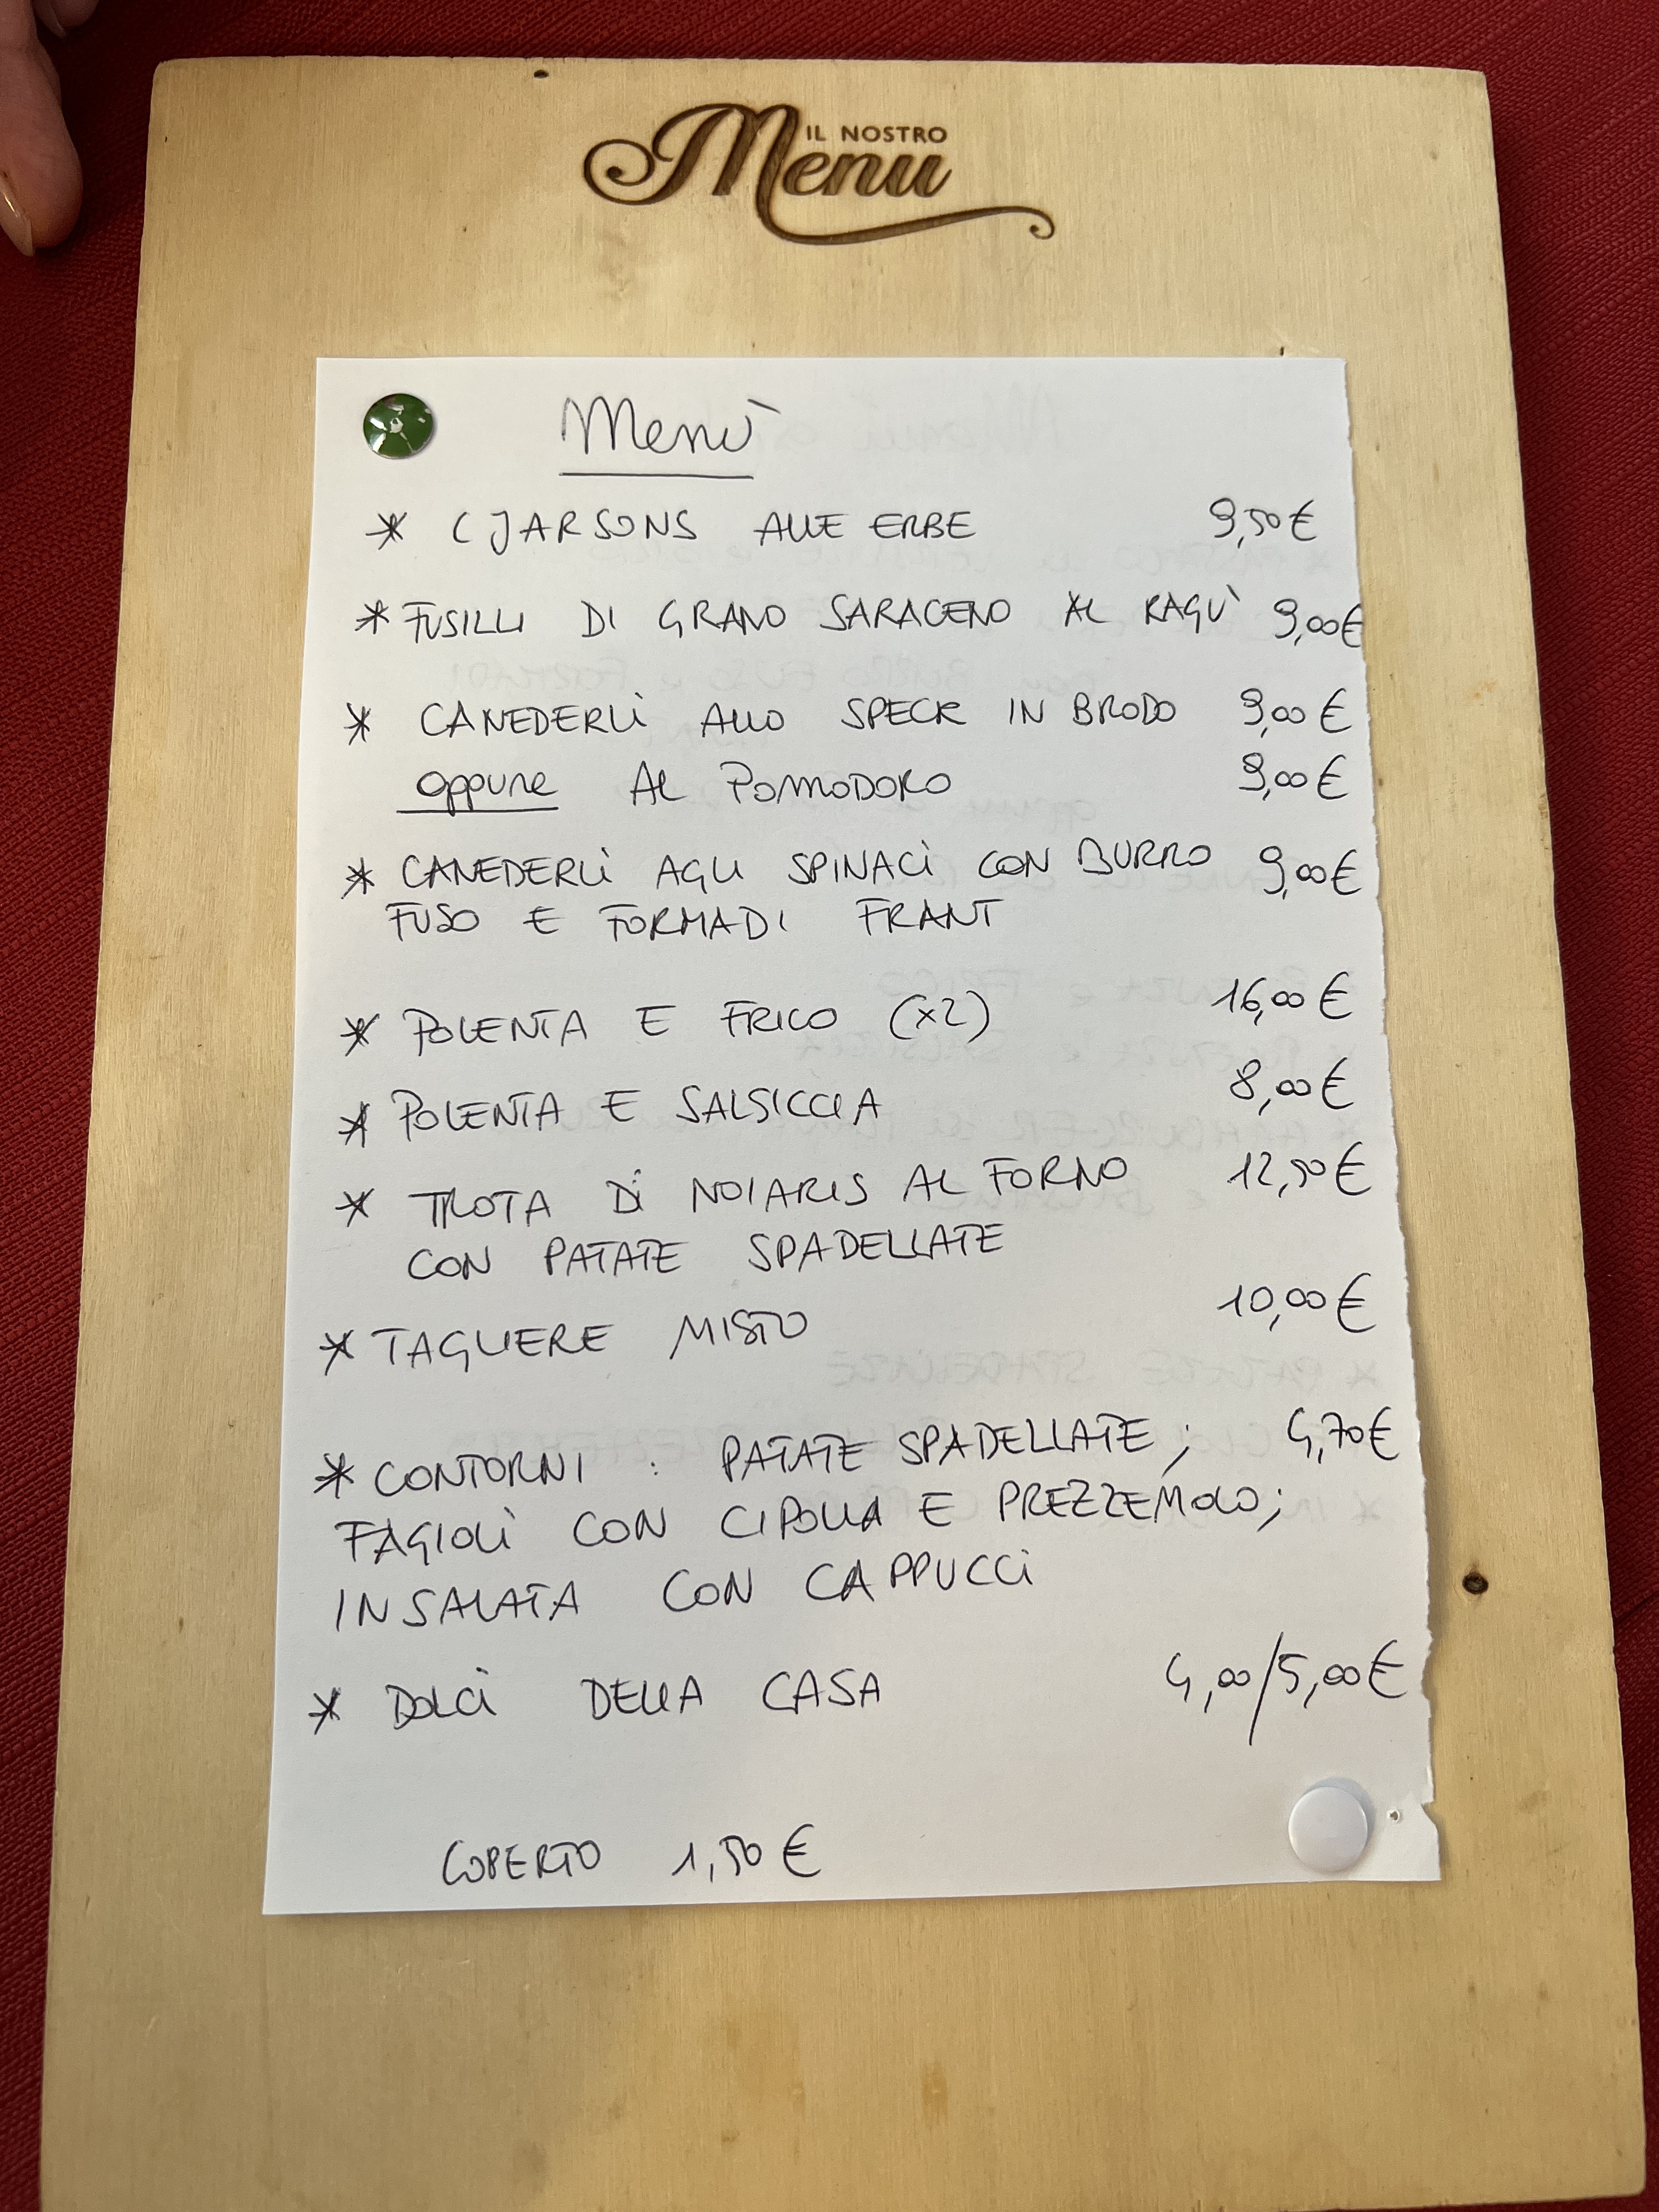 IL NOSTRO
Menu
Menù
* CJARSONS ALLE ERBE 9,50€
* FUSILLI DI GRANO SARACENO AL RAGÙ 9,00€
* CANEDERLi ALLO SPECK IN BRODO 9,00€
oppure AL POMODORO 9,00€
* CANEDERLi AGLI SPINACi CON BURRO 9,00€
FUSO E FORMADI FRANT
* POLENTA E FRICO (x2) 16,00€
* POLENTA E SALSICCIA 8,00€
* TROTA Di NOIARIS AL FORNO 12,50€
CON PATATE SPADELLATE
* TAGLIERE MISTO 10,00€
* CONTORNI : PATATE SPADELLATE ; 4,70€
FAGIOLi CON CIPOLLA E PREZZEMOLO;
INSALATA CON CAPPUCCi
* DOLCi DELLA CASA 4,00/5,00€
COPERTO 1,50€